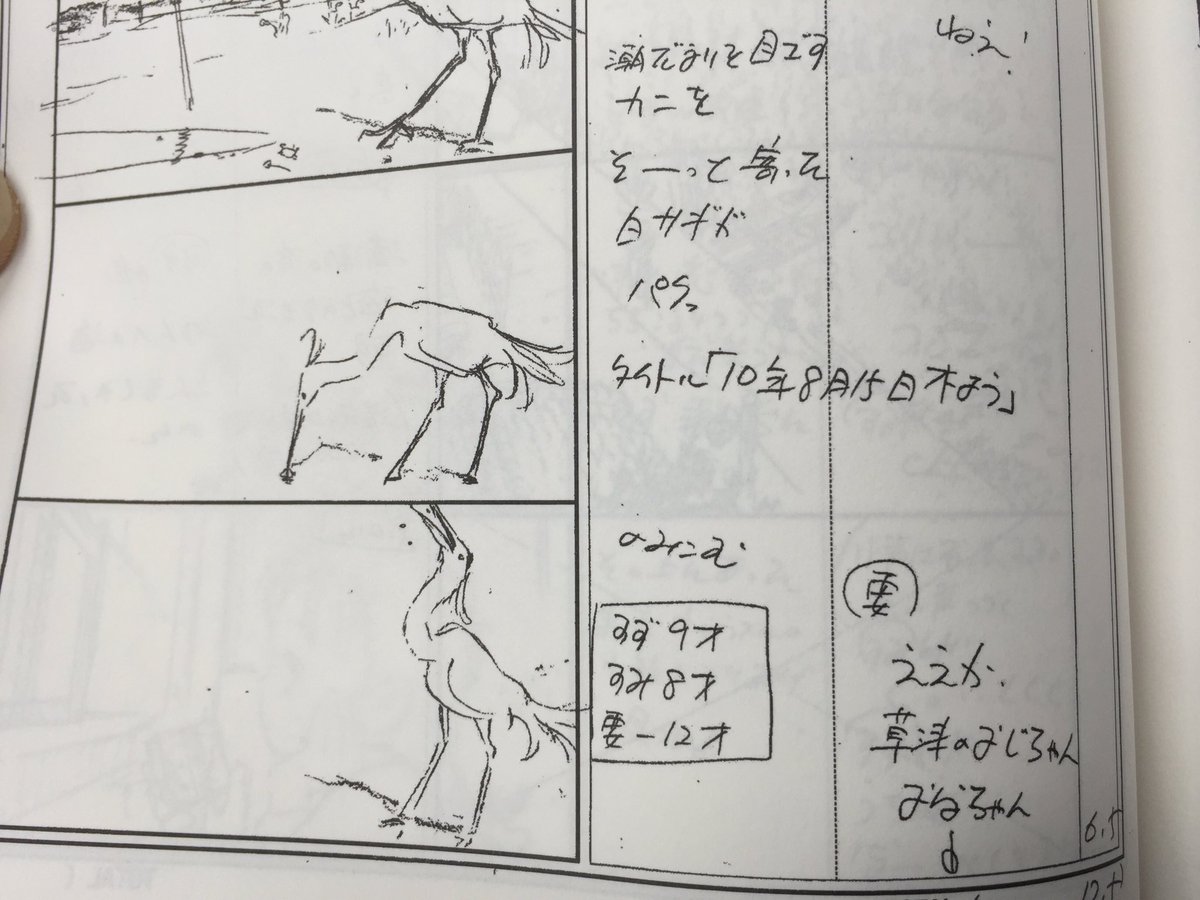 ねえ!
潮だまりを目です
カニを
そーっと寄って
白サギが
パクっ
タイトル「10年8月15日木よう」
のみこむ
すず9才
すみ8才
要一12才
要
ええか、
草津のおじちゃん
おばちゃん
6.5